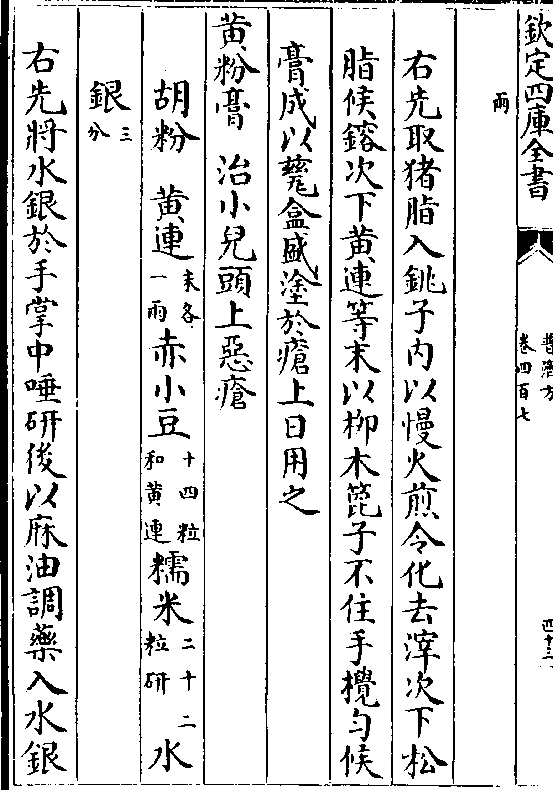 欽定四庫全書
普濟方
卷四百七
四十三
兩
右先取猪脂入銚子内以慢火煎令化去滓次下松
脂候鎔次下黄連等末以柳木箆子不住手攪匀候
膏成以甆盒盛塗於瘡上日用之
黄粉膏　治小兒頭上惡瘡
胡粉　黄連末各一兩　赤小豆十四粒和黄連　糯米二十二粒研　水
銀三分
右先將水銀於手掌中唾研後以麻油調藥入水銀